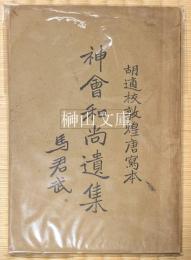 胡適校敦煌唐寫本
神會和尚遺集
馬君武
榊山文庫